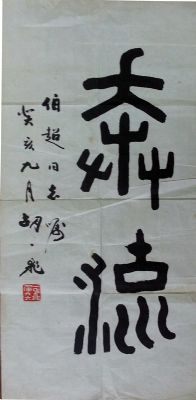 奔流
伯超同志嘱
癸亥九月胡一飛